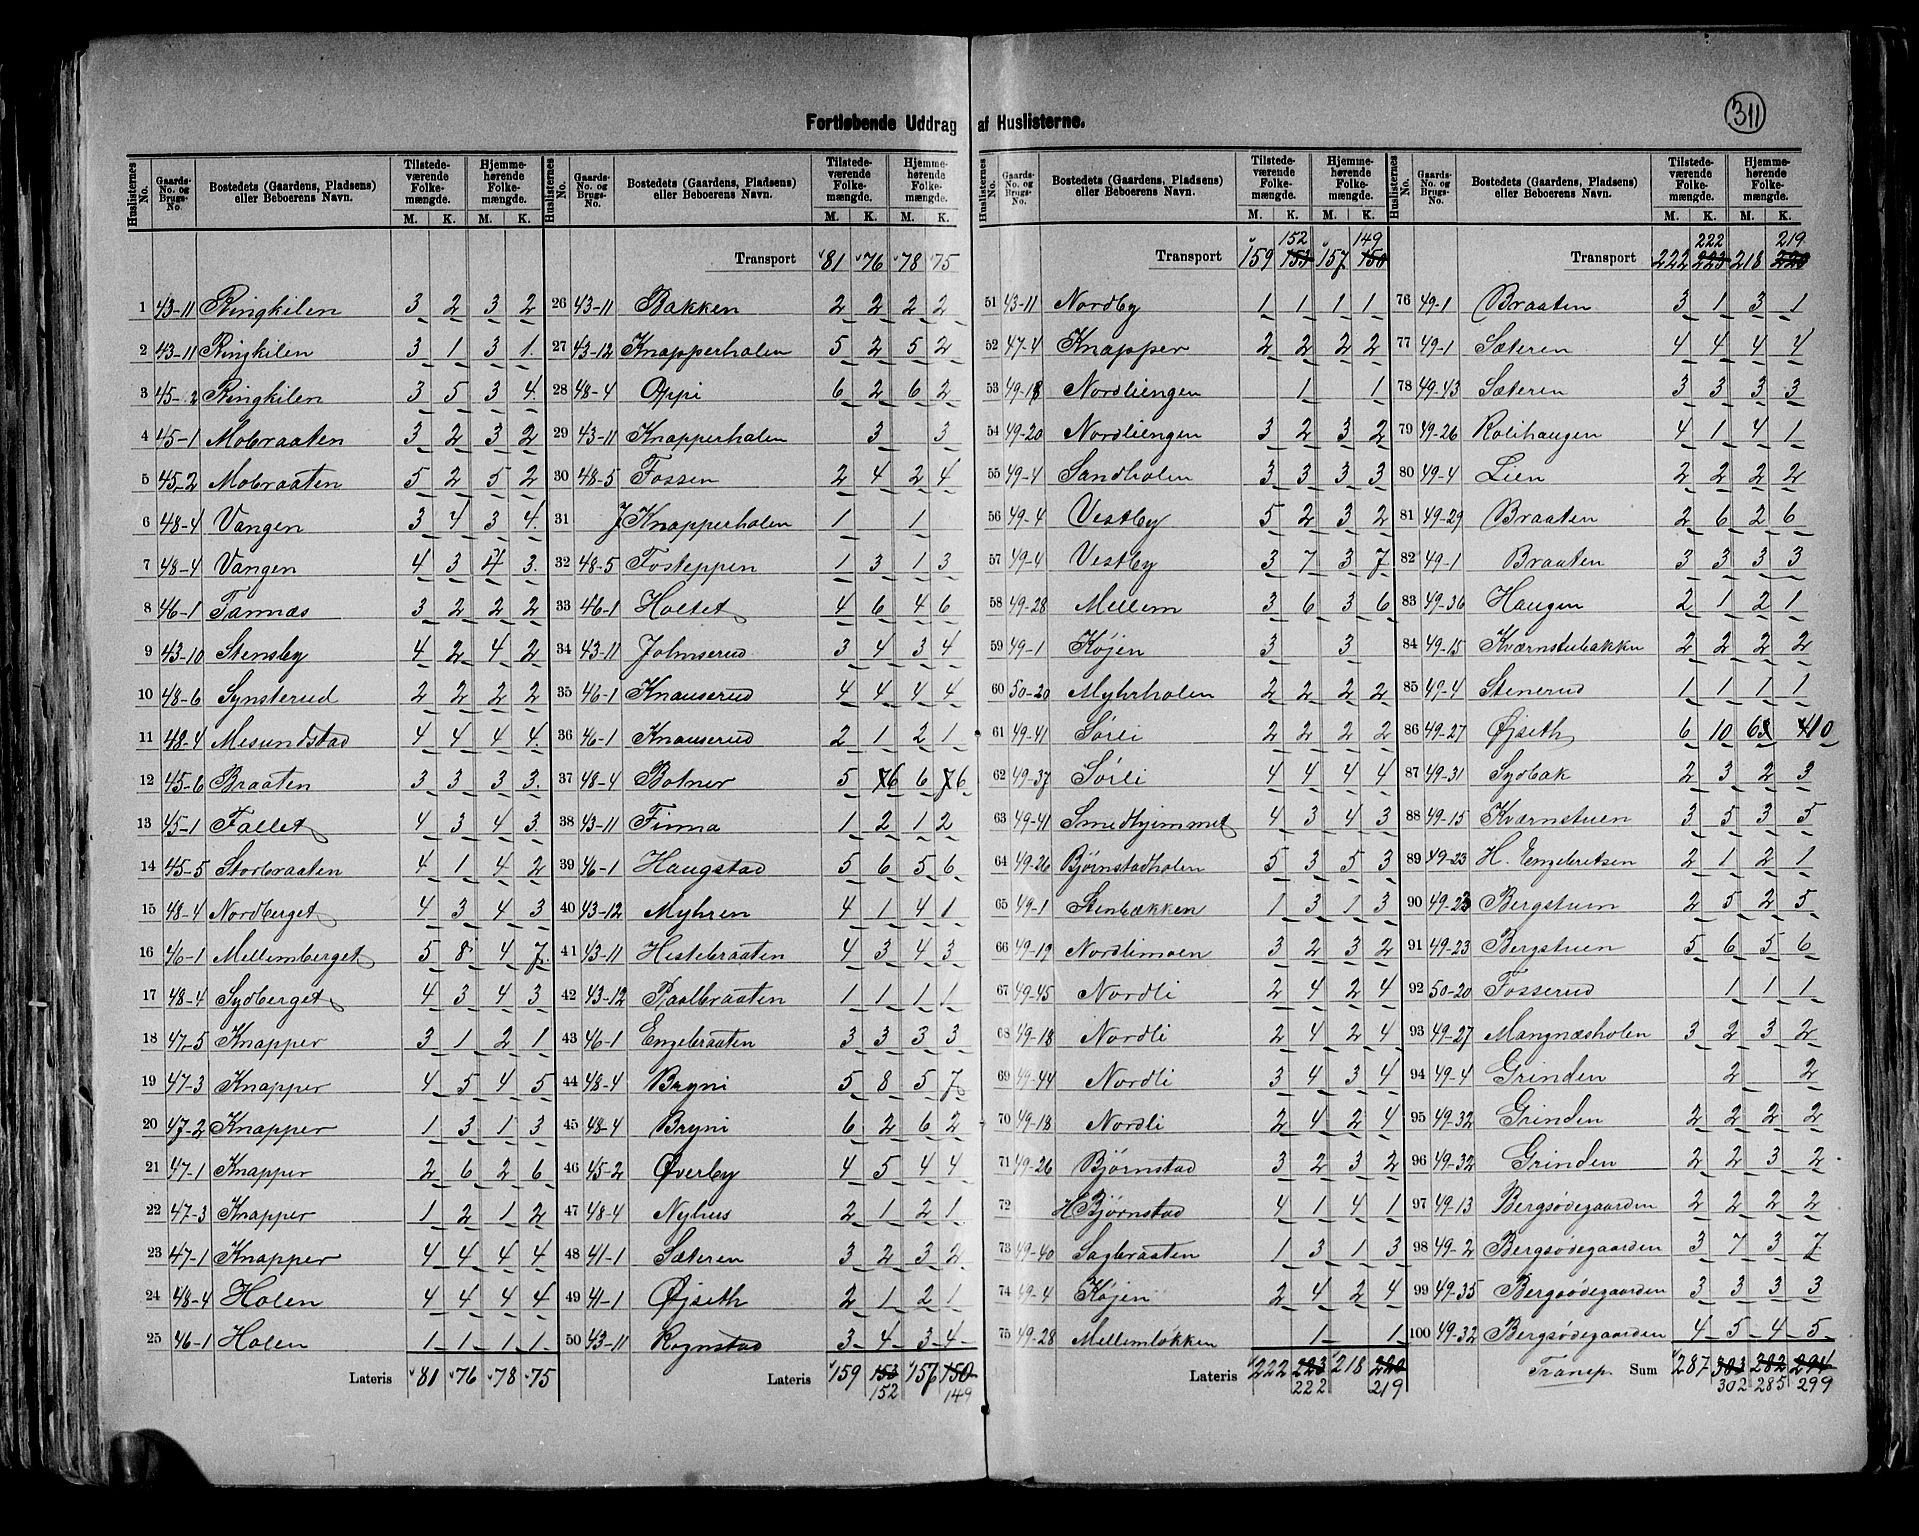 311
Fortløbende Uddrag af Huslisterne.
Huslisternes No. | Gaards-No. og Brugs-No. | Bostedets (Gaardens, Pladsens) eller Beboerens Navn. | Tilstedeværende Folkemængde. M. K. | Hjemmehørende Folkemængde. M. K.
1 43-11 Ringkilen 3 2 3 2
2 43-11 Ringkilen 3 1 3 1
3 45-2 Ringkilen 3 5 3 4
4 45-1 Mobraaten 3 2 3 2
5 45-2 Mobraaten 5 2 5 2
6 48-4 Vangen 3 4 3 4
7 48-4 Vangen 4 3 4 3
8 46-1 Tannæs 3 2 2 2
9 43-10 Stensby 4 2 4 2
10 48-6 Synsterud 2 2 2 2
11 48-4 Mesundstad 4 4 4 4
12 45-6 Braaten 3 3 3 3
13 45-1 Fallet 4 3 4 3
14 45-5 Storbraaten 4 1 4 2
15 48-4 Nordberget 4 3 4 3
16 46-1 Mellemberget 5 8 4 7
17 48-4 Sydberget 4 3 4 3
18 47-5 Knapper 3 1 2 1
19 47-3 Knapper 4 5 4 5
20 47-2 Knapper 1 3 1 3
21 47-1 Knapper 2 6 2 6
22 47-3 Knapper 1 2 1 2
23 47-1 Knapper 4 4 4 4
24 48-4 Holen 4 4 4 4
25 46-1 Holen 1 1 1 1
Lateris 81 76 78 75
Transport 81 76 78 75
26 43-11 Bakken 2 2 2 2
27 43-12 Knapperholen 5 2 5 2
28 48-4 Oppi 6 2 6 2
29 43-11 Knapperholen 3 3
30 48-5 Fossen 2 4 2 4
31 J Knapperholen 1 1
32 48-5 Fosteppen 1 3 1 3
33 46-1 Holtet 4 6 4 6
34 43-11 Johnserud 3 4 3 4
35 46-1 Knauserud 4 4 4 4
36 46-1 Knauserud 2 1 2 1
37 48-4 Botner 5 76 6 76
38 43-11 Finna 1 2 1 2
39 46-1 Haugstad 5 6 5 6
40 43-12 Myhren 4 1 4 1
41 43-11 Hestebraaten 4 3 4 3
42 43-12 Paalbraaten 1 1 1 1
43 46-1 Engebraaten 3 3 3 3
44 48-4 Bryni 5 8 5 7
45 48-4 Bryni 6 2 6 2
46 45-2 Øverby 4 5 4 4
47 48-4 Nyhus 2 1 2 1
48 41-1 Sæteren 3 2 3 2
49 41-1 Øjseth 2 1 2 1
50 43-11 Rognstad 3 4 3 4
Lateris 159 153 157 150
152 149
152 149
Transport 159 153 157 150
51 43-11 Nordby 1 1 1 1
52 47-4 Knapper 2 2 2 2
53 49-18 Nordliengen 1 1
54 49-20 Nordliengen 3 2 3 2
55 49-4 Sandholen 3 3 3 3
56 49-4 Vestby 5 2 3 2
57 49-4 Vestby 3 7 3 7
58 49-28 Mellem 3 6 3 6
59 49-1 Køjen 3 3
60 50-20 Myhrholen 2 2 2 2
61 49-41 Sørli 2 2 2 2
62 49-37 Sørli 4 4 4 4
63 49-41 Smedhjemmet 4 3 4 3
64 49-26 Bjørnstadholen 5 3 5 3
65 49-1 Stenbækken 1 3 1 3
66 49-19 Nordlimoen 3 2 3 2
67 49-45 Nordli 2 4 2 4
68 49-18 Nordli 2 4 2 4
69 49-44 Nordli 3 4 3 4
70 49-18 Nordli 2 4 2 4
71 49-26 Bjørnstad 3 2 3 2
72 H Bjørnstad 4 1 4 1
73 49-40 Sagbraaten 1 3 1 3
74 49-4 Køjen 2 4 2 4
75 49-28 Mellemløkken 1 1
Lateris 222 223 218 220
222 219
222 219
Transport 222 223 218 220
76 49-1 Braaten 3 1 3 1
77 49-1 Sæteren 4 4 4 4
78 49-43 Sæteren 3 3 3 3
79 49-26 Rolihaugen 4 1 4 1
80 49-4 Lien 2 2 2 2
81 49-29 Braaten 2 6 2 6
82 49-1 Braaten 3 3 3 3
83 49-36 Haugen 2 1 2 1
84 49-15 Kværnstubakken 2 2 2 2
85 49-4 Stenerud 1 1 1 1
86 49-27 Øjseth 6 10 63 410
87 49-31 Sydbak 2 3 2 3
88 49-15 Kværnstuen 3 5 3 5
89 49-23 H. Engebretsen 2 1 2 1
90 49-23 Bergstuen 2 5 2 5
91 49-23 Bergstuen 5 6 5 6
92 50-20 Fosserud 1 1 1
93 49-27 Mangnæsholen 3 2 3 2
94 49-4 Grinden 2 2
95 49-32 Grinden 2 2 2 2
96 49-32 Grinden 2 2 3 2
97 49-13 Bergsødegaarden 2 2 2 2
98 49-2 Bergsødegaarden 3 7 3 7
99 49-35 Bergsødegaarden 3 3 3 3
100 49-32 Bergsødegaarden 4 5 4 5
Transp. Sum 287 303 282 294
302 285 299